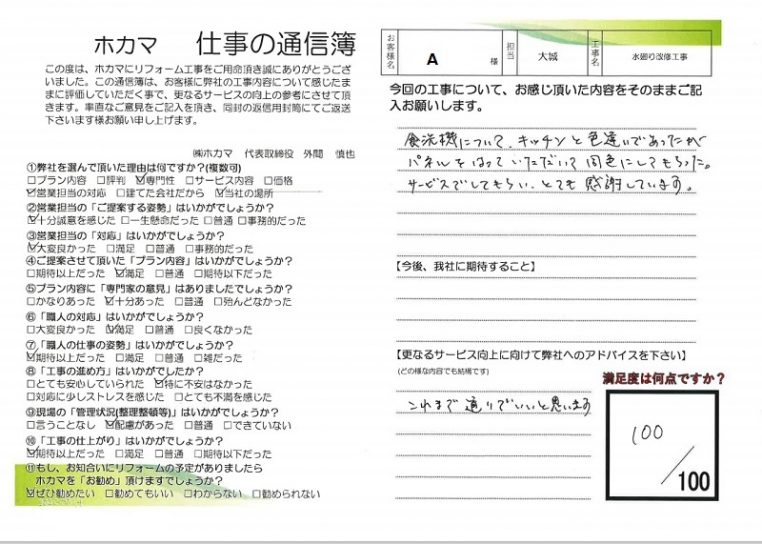 ホカマ 仕事の通信簿
この度は、ホカマにリフォーム工事をご用命頂き誠にありがとうござ
いました。この通信簿は、お客様に弊社の工事内容について感じたま
まに評価していただく事で、更なるサービスの向上の参考にさせて頂
きます。率直なご意見をご記入を頂き、同封の返信用封筒にてご返送
下さいます様お願い申し上げます。
㈱ホカマ 代表取締役 外間 慎也
①弊社を選んで頂いた理由は何ですか?(複数可)
□プラン内容 □評判 ☑専門性 □サービス内容 □価格
☑営業担当の対応 □建てた会社だから ☑当社の場所
②営業担当の「ご提案する姿勢」はいかがでしょうか?
☑十分誠意を感じた □一生懸命だった □普通 □事務的だった
③営業担当の「対応」はいかがでしょうか?
☑大変良かった □満足 □普通 □事務的だった
④ご提案させて頂いた「プラン内容」はいかがでしょうか?
□期待以上だった ☑満足 □普通 □期待以下だった
⑤プラン内容に「専門家の意見」はありましたでしょうか?
□かなりあった ☑十分あった □普通 □殆んどなかった
⑥「職人の対応」はいかがでしょうか?
□大変良かった ☑満足 □普通 □良くなかった
⑦「職人の仕事の姿勢」はいかがでしょうか?
☑期待以上だった □満足 □普通 □雑だった
⑧「工事の進め方」はいかがでしたか?
□とても安心していられた ☑特に不安はなかった
□対応に少しストレスを感じた □とても不満を感じた
⑨現場の「管理状況(整理整頓等)」はいかがでしょうか?
□言うことなし ☑配慮があった □普通 □できていない
⑩「工事の仕上がり」はいかがでしょうか?
☑期待以上だった □満足 □普通 □期待以下だった
⑪もし、お知合いにリフォームの予定がありましたら
ホカマを「お勧め」頂けますでしょうか?
☑ぜひ勧めたい □勧めてもいい □わからない □勧められない
お客様名 A 様 担当 大城 工事名 水廻り改修工事
今回の工事について、お感じ頂いた内容をそのままご記
入お願いします。
食洗機について、キッチンと色違いであったが
パネルをはっていただいて同色にしてもらった。
サービスでしてもらい、とても感謝しています。
【今後、我社に期待すること】
【更なるサービス向上に向けて弊社へのアドバイスを下さい】
(どの様な内容でも結構です)
これまで通りでいいと思います
満足度は何点ですか?
100/100